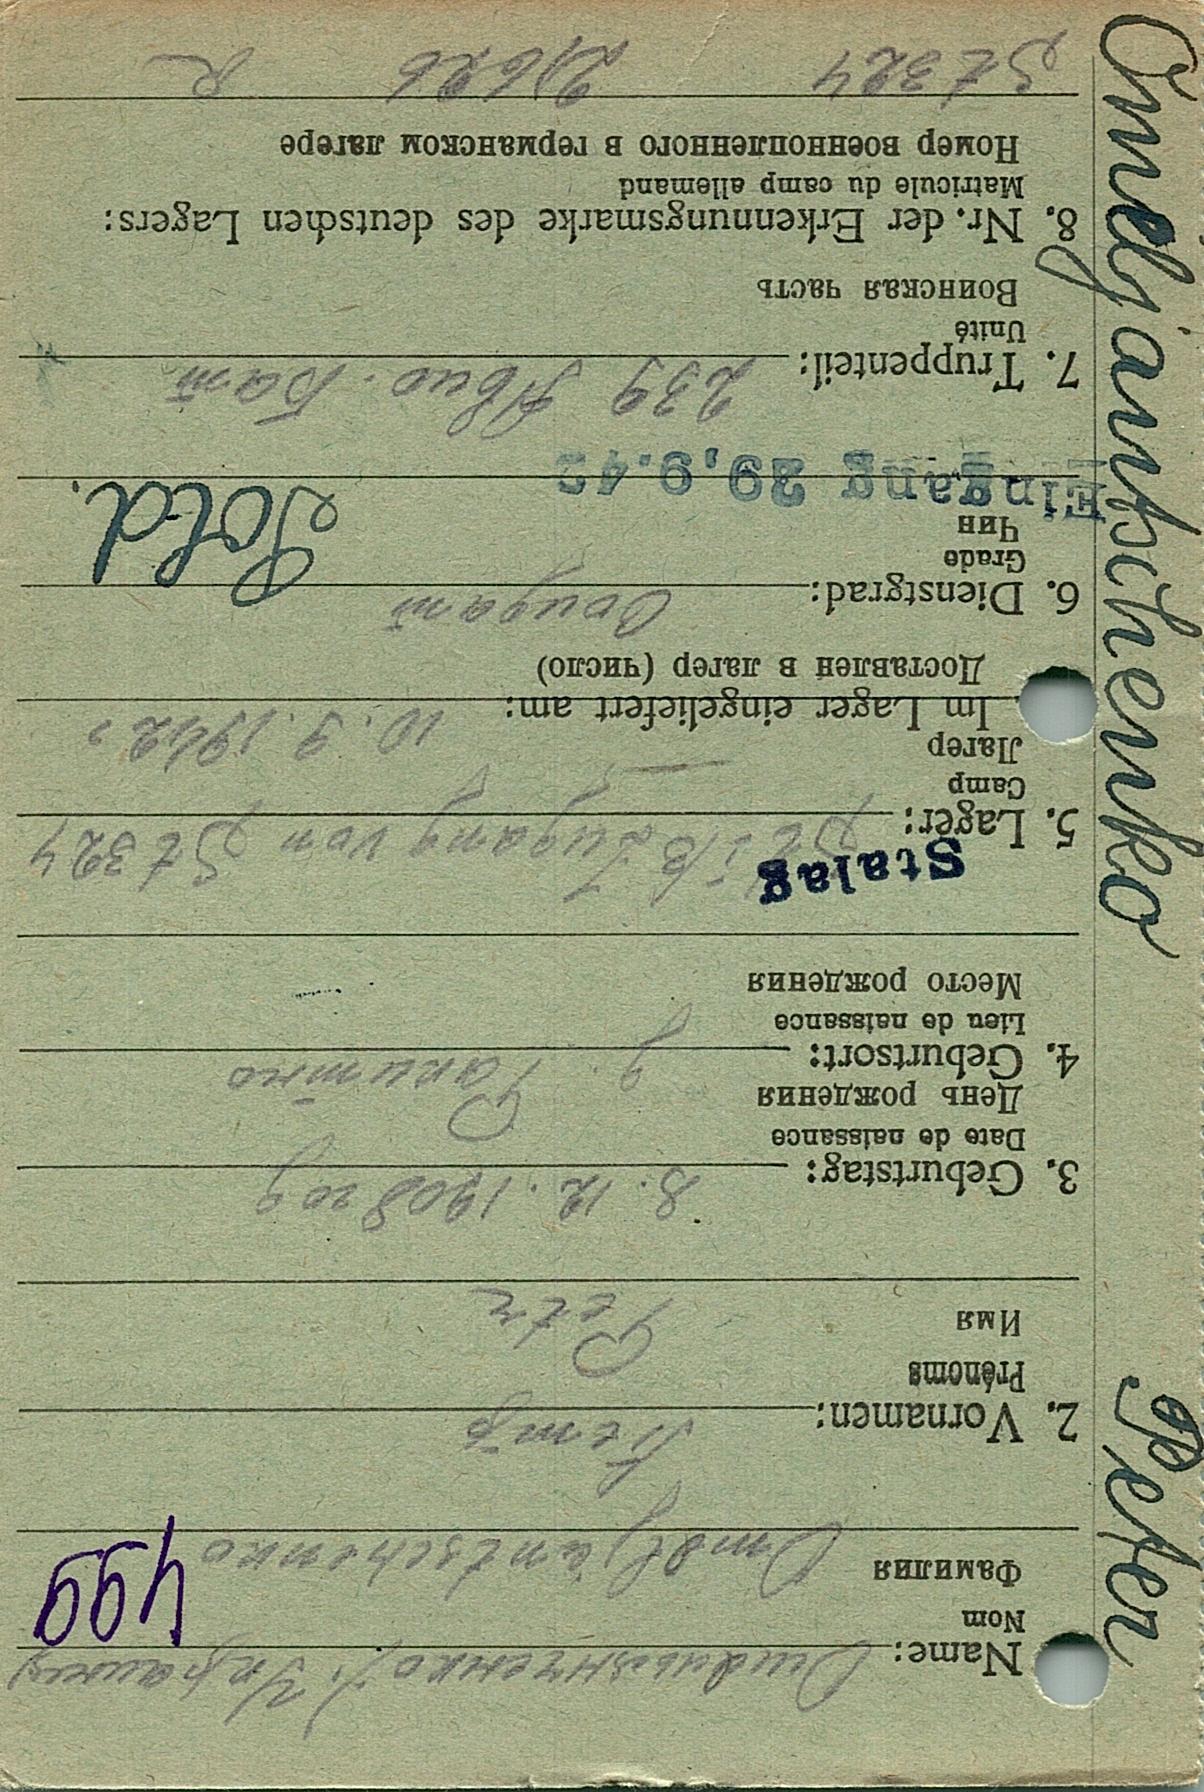 Omeljantschenko Peter
Name: Омельянченко
Nom
499
Фамилия
Omeljantschenko
2. Vornamen: Петр
Prénoms
Имя
Petr
3. Geburtstag: 8. 12. 1908 год
Date de naissance
День рождения
4. Geburtsort:
Lieu de naissance
Место рождения
Stalag
5. Lager: St IB Zugang von St 324
Camp
Лагер
Im Lager eingeliefert am: 10. 9. 1942
Доставлен в лагер (число)
6. Dienstgrad: Солдат Sold.
Grade
Чин
Eingang 29.9.42
7. Truppenteil: 239
Unité
Воинская часть
8. Nr. der Erkennungsmarke des deutschen Lagers:
Matricule du camp allemand
Номер военнопленного в германском лагере
St 324